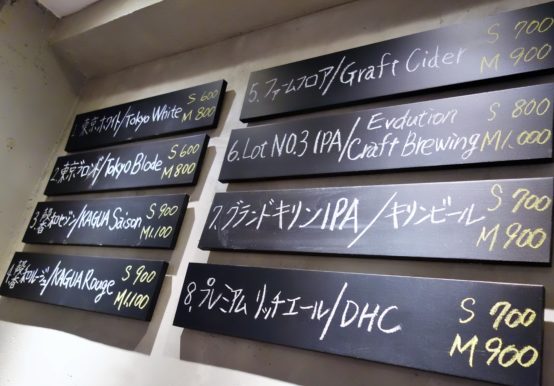 1. 東京ホワイト/Tokyo White S 600
M 800
2. 東京ブロンド/Tokyo Blode S 600
M 800
3. 馨和セゾン/KAGUA Saison S 900
M 1.100
4. 馨和ルージュ/KAGUA Rouge S 900
M 1.100
5. ファームフロア/Graft Cider S 700
M 900
6. Lot NO.3 IPA/Evdution Craft Brewing S 800
M 1.000
7. グランドキリンIPA/キリンビール S 700
M 900
8. プレミアム リッチエール/DHC S 700
M 900